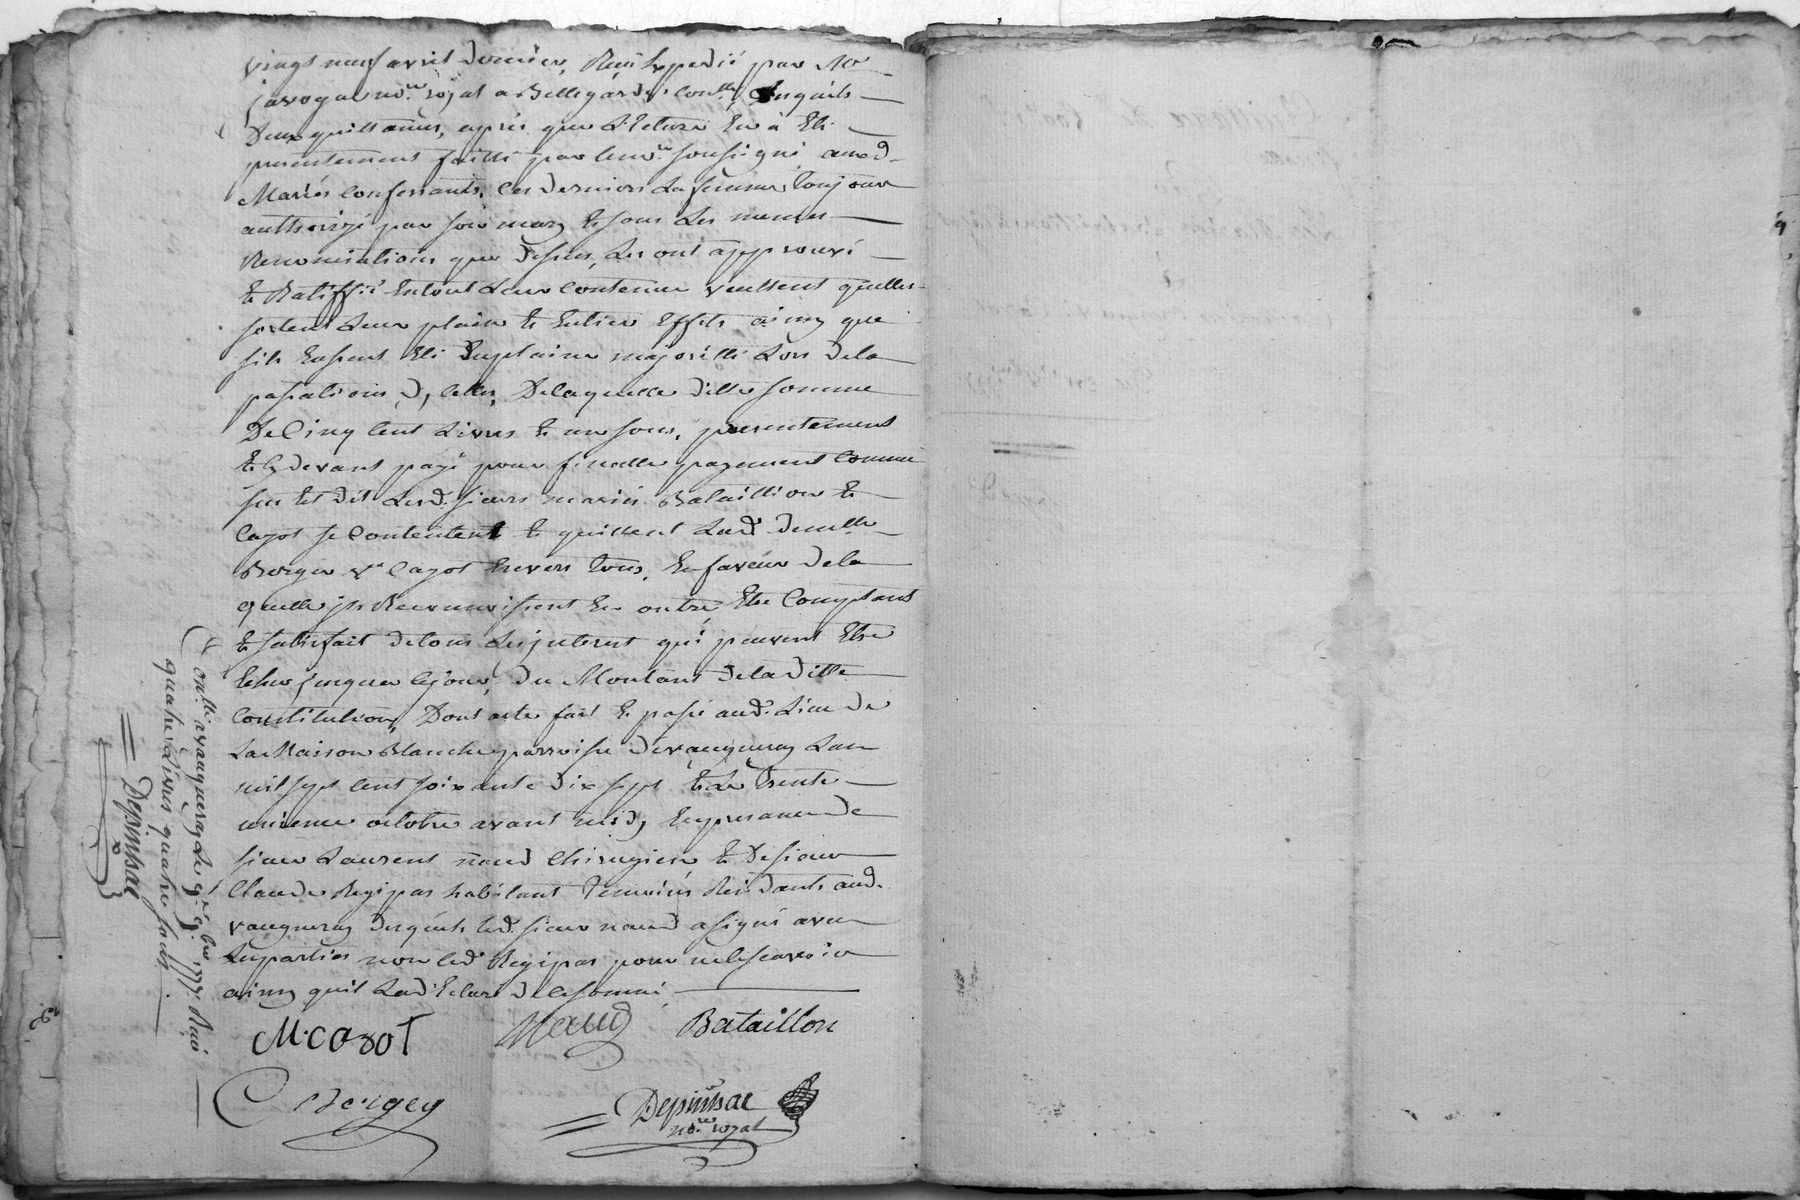 vingt neuf avril dernier, Reçu Expedié par Me
javogue no.re royal a Bellegarde, Con.llé, Ausquels
Deux quittances, apres que Lecture En a Eté
presentement faitte par le no.re soussigné, auxd.
Mariés confessants, ces derniers La femme toujours
authorizé par son mary et sous Les memes
Renonciations que Dessus, Les ont approuvé
et Ratiffié Entout Leur Contenu veullent quelles
sortent Leur plain et Entier Effets ainsy que
sils Eussent Eté En plaine majorité Lors dela
passation D'y celles, Delaquelle ditte somme
De Cinq Cent Livres et un sous, presentement
et Cy devant payé pour finalle payement Comme
sus Est dit Lesd. sieurs mariés Bataillion et
Cazot se Contentent et quittent Lad. Demlle
Berger ve Cazot Envers tous, En faveur dela
quelle ils Reconnoissent En outre, Etre Comptant
et satisfait de tous Les interest qui peuvent Etre
Echus jusques Cejour, du Montant De la ditte
Constitution, Dont acte fait et passé aud. Lieu de
La Maison Blanche parroisse De vaugneray Lan
mil sept Cent soixante dix sept et Le trente
unieme octobre avant midy En presance De
sieur Laurent naud Chirugien et De sieur
Claude Regipas habitant Temoins Residants aud.
vaugneray Desquels Led. sieur naud a signé avec
Les parties non led. Regipas pour ne le scavoir
ainsy quil La déclaré De ce sommé
M. Cazot
Naud
Bataillon
C Berger
Depinssac
no.re royal
Con.llé a vaugneray Le 9.bre 1777. Reçu
quatre Livres quatre sous
Depinssac